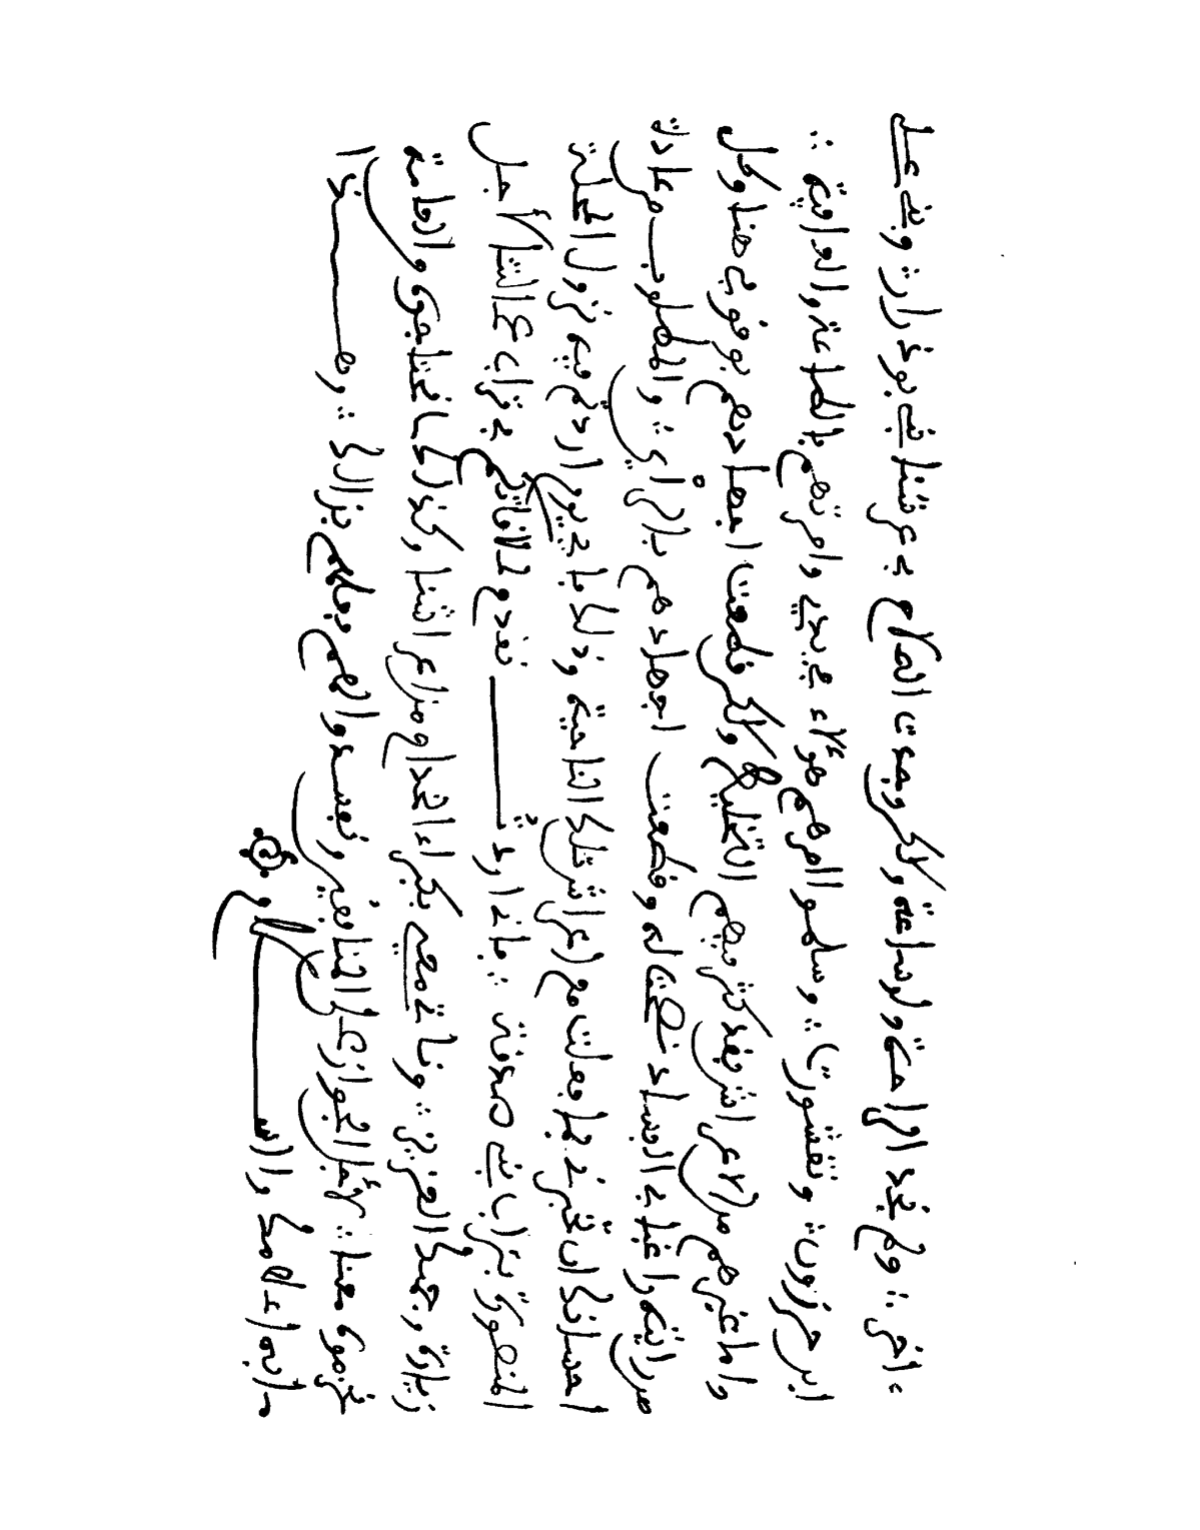 اخر .. ولم نجد الى راحة ولو ساعة ولاكن وجدت الصلاح في عرشنا بني بوذرارت وبني علي
ابن حرزون .. ونقشورت .. وسلموا امرهم هؤلاء في يدي وامرتهم بالطاعة والعافية ..
واما غيرهم من الاعراش فقد كثر فيهم التخليط ولاكن قطعت اجهادهم بوقوفي هنا وكل
من رايته راغبا في الفساد نصحت له وقطعت اجهادهم .. والمطلوب من عادة
احسانكا ان تخبرني بما جعلت مع اعراش تلكا الناحية وذلكا باي يوم اردتم فيه نزول المحلة
المنصورة بتراب بني صدقة .. اردت نقدم لملاقاتكم في تراب لاجل
زيارة وجهكا العزيز .. وناتي معي بكبراء الخدام من اعراشنا وكذلكا ما نحتاجوا من
معنا .. لاجل الجواز على المنافقين ونفسدوا لهم بذالكا .. وهذا
ما اعلامكا والسلام